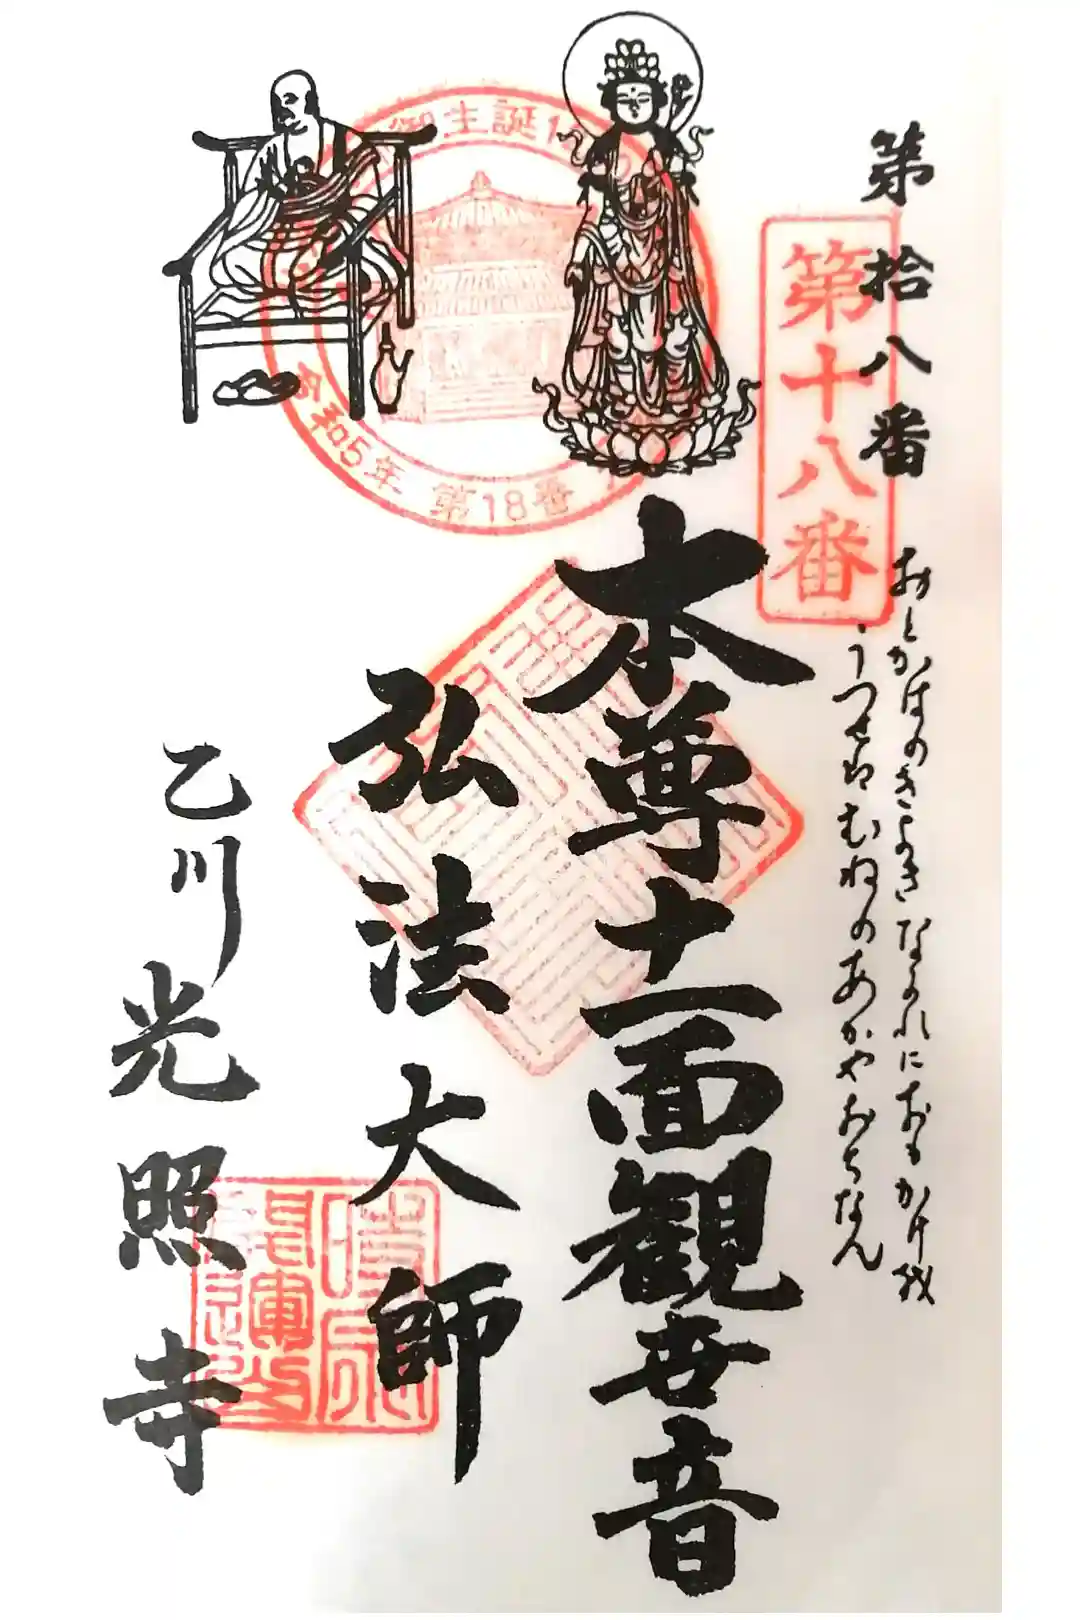 第拾八番
第十八番
おとかはのきよきながれにおもかげ我
うつせばむねのあかやおちなん
本尊十一面観世音
弘法大師
乙川光照寺
御生誕1
令和5年 第18番